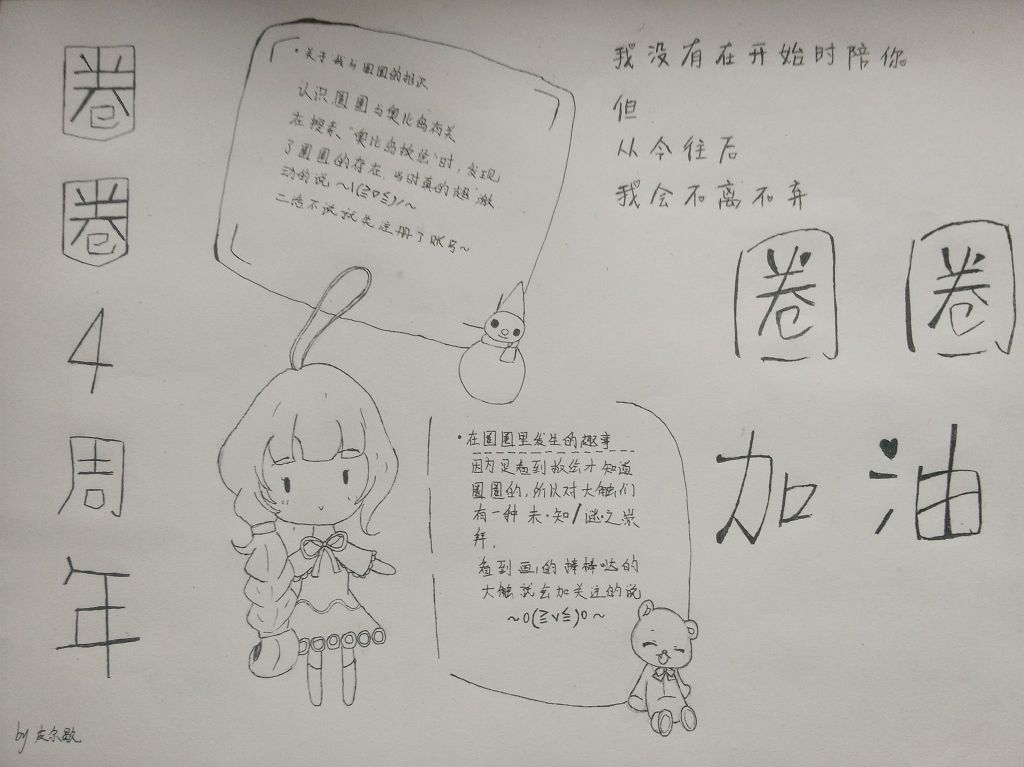 圈
圈
4
周
年
·关于我与圈圈的相识
认识圈圈与奥比岛有关
在搜索"奥比岛板绘"时,发现
了圈圈的存在.当时真的超激
动的说~\(≧▽≦)/~
二话不说就先注册了账号~
我没有在开始时陪你
但
从今往后
我会不离不弃
圈圈
加油
·在圈圈里发生的趣事
因为是看到板绘才知道
圈圈的,所以对大触们
有一种未·知/谜·之崇
拜.
看到画的棒棒哒的
大触就会加关注的说
~o(≧v≦)o~
by 皮尔歐